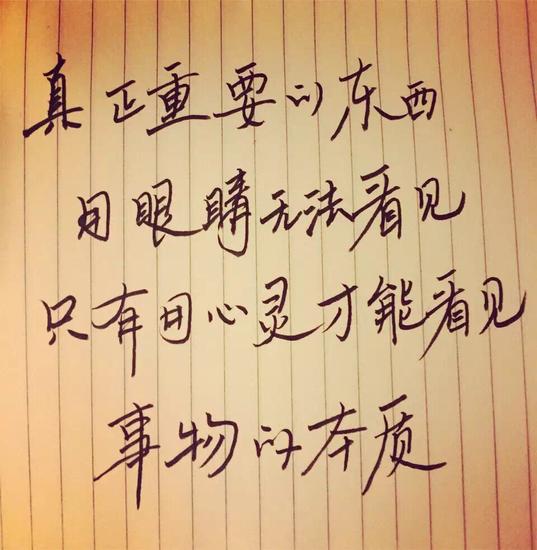 真正重要的东西
用眼睛无法看见
只有用心灵才能看见
事物的本质